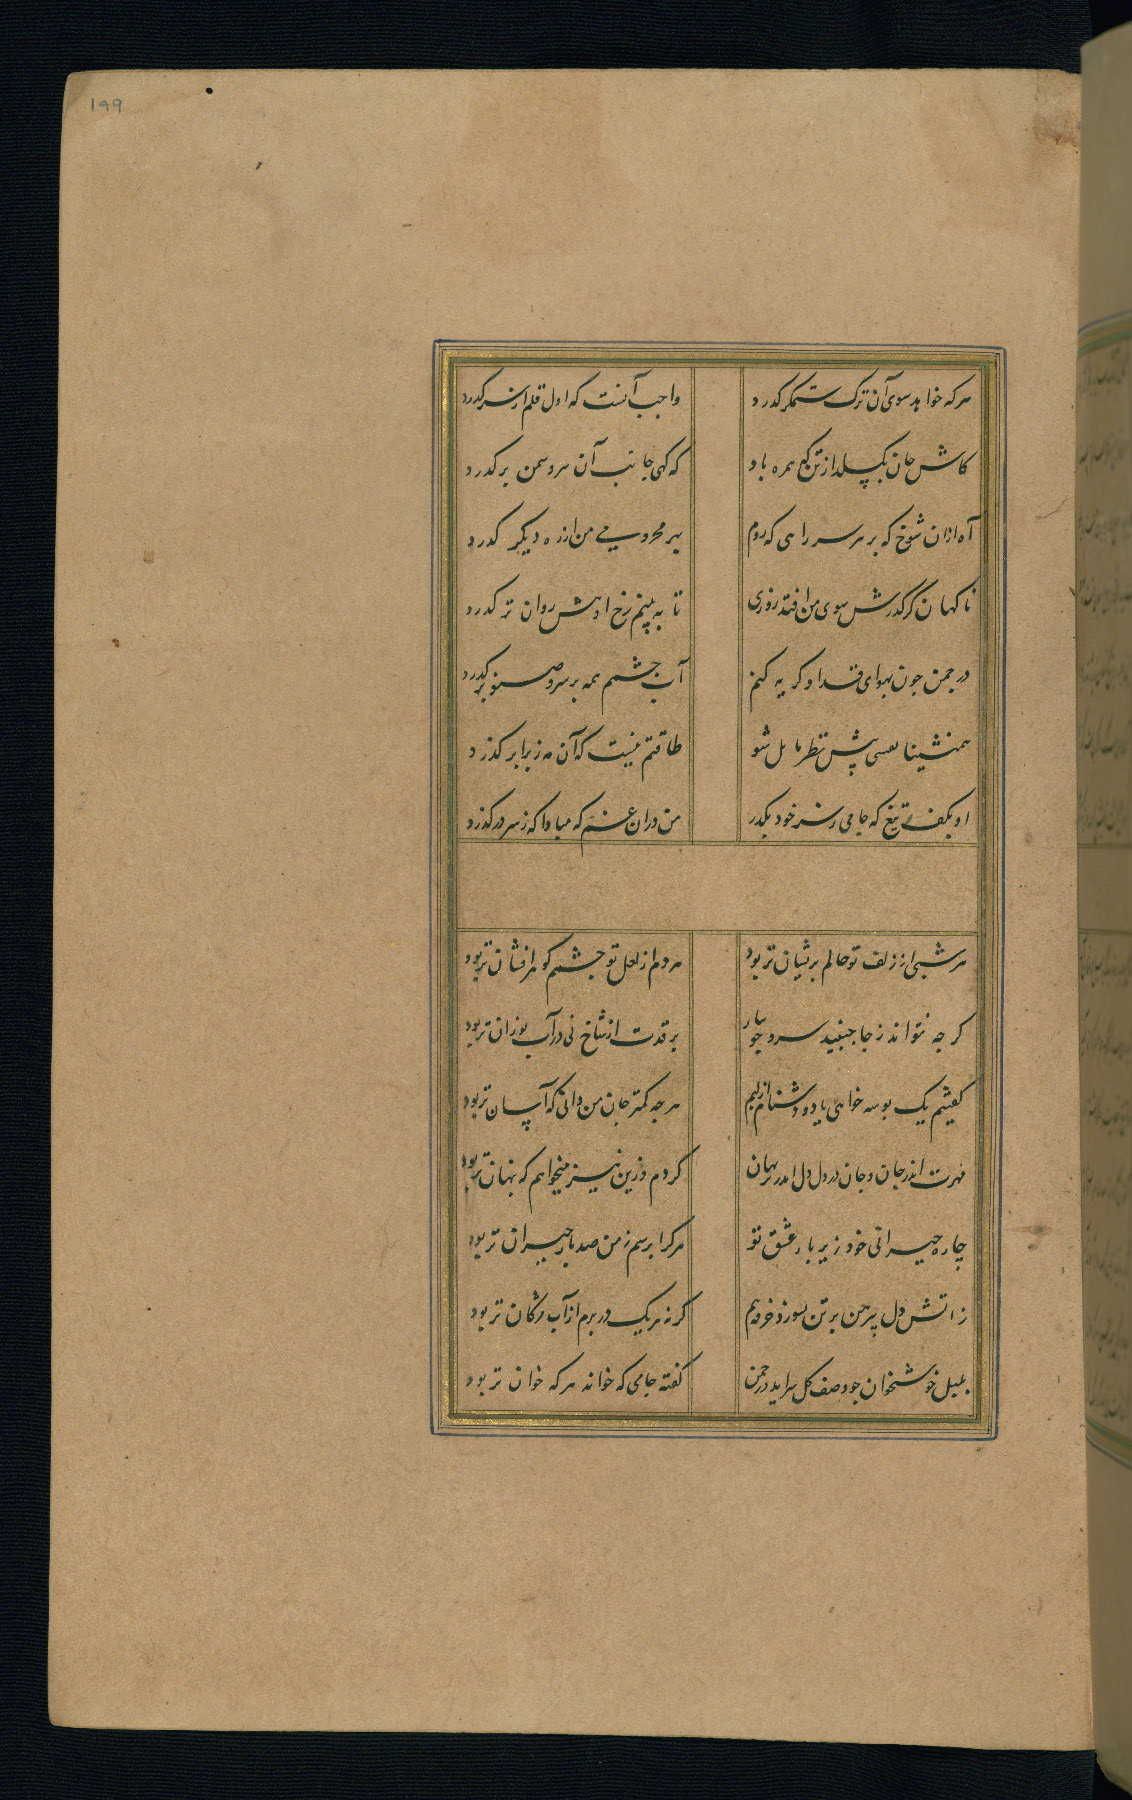 199
هر که خواهد سوی آن ترک ستمگر گذرد واجب آنست که اول قدم از سر گذرد
کاش جان بگسلد از تن که همره باد که گهی جانب آن سرو سمن بر گذرد
آه ازان شوخ که بر هر سر راهی که روم بهر محرومی من از ره دیگر گذرد
ناکهان گر گذرش سوی من افتد روزی تا نه بینم رخ او پیش روان تر گذرد
در چمن چون بهوای قد او گریه کنم آب چشمم همه بر سرو و صنوبر گذرد
همنشینا نفسی پیش نظر مایل شو طاقتم نیست که آن مه ز برابر گذرد
او بکف تیغ که جامی ز سر خود بگذر من در آن غم که مبادا که ز سر در گذرد
هر شبی از زلف تو حالم پریشان تر بود هر دم از لعل تو چشمم گوهر افشان تر بود
گر چه نتواند ز جا جنبید سرو جویبار بر قدت از شاخ نی در آب لرزان تر بود
گفتیم یک بوسه خواهی یا دو دشنام از لبم هر چه کمتر جان من دانی که آسان تر بود
مهرت اندر جان و جان در دل دل اندر بر نهان کردم و زین نیز میخواهم که پنهان تر بود
چاره حیرانی خود زیر بار عشق تو هر کرا پرسم ز من صد بار حیران تر بود
ز آتش دل پیرهن بر تن بسوزد خرقه هم گر نه هر یک در برم از آب مژگان تر بود
بلبل خوشخوان چو وصف گل سراید در چمن گفته جامی که خواند هر که خوان تر بود